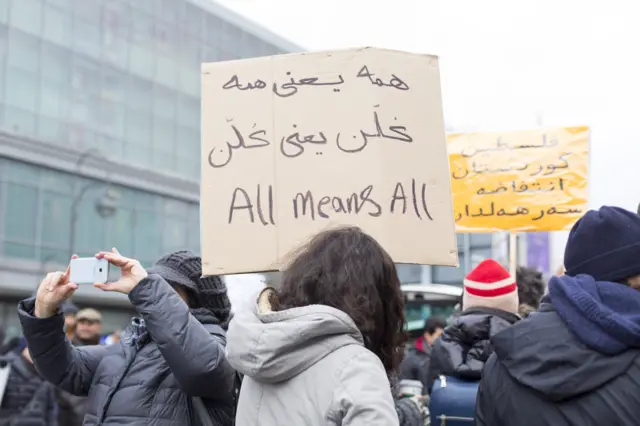 همه یعنی همه
كلّن يعني كلّن
All means All
فلسطين
كورستان
انتفاضه
سەرهەلدان